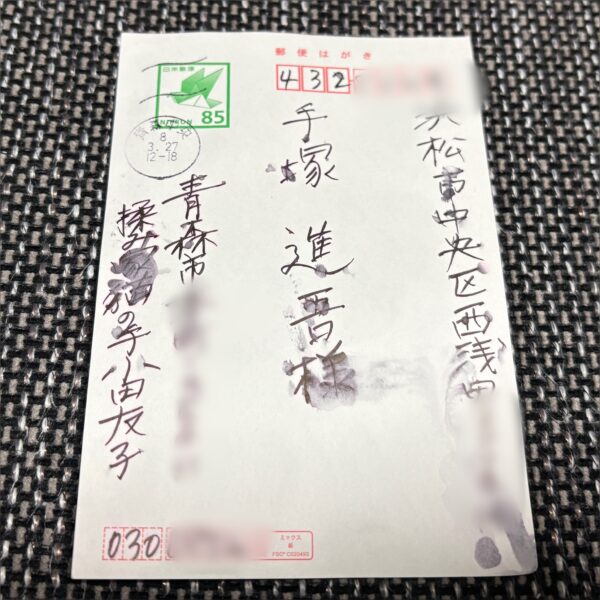 郵便はがき
日本郵便
NIPPON 85
432
8
3.27
12-18
松市中央区西浅田
手塚 進吾様
青森市
揉み家猫の手 小田友子
030
ミックス
紙
FSC® C020493